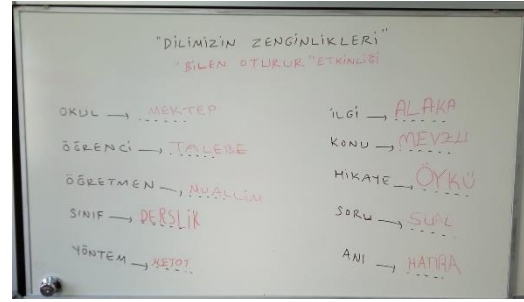 "DİLİMİZİN ZENGİNLİKLERİ"
"BİLEN OTURUR" ETKİNLİĞİ
OKUL → MEKTEP
ÖĞRENCİ → TALEBE
ÖĞRETMEN → MUALLİM
SINIF → DERSLİK
YÖNTEM → METOT
İLGİ → ALAKA
KONU → MEVZU
HİKAYE → ÖYKÜ
SORU → SUAL
ANI → HATIRA